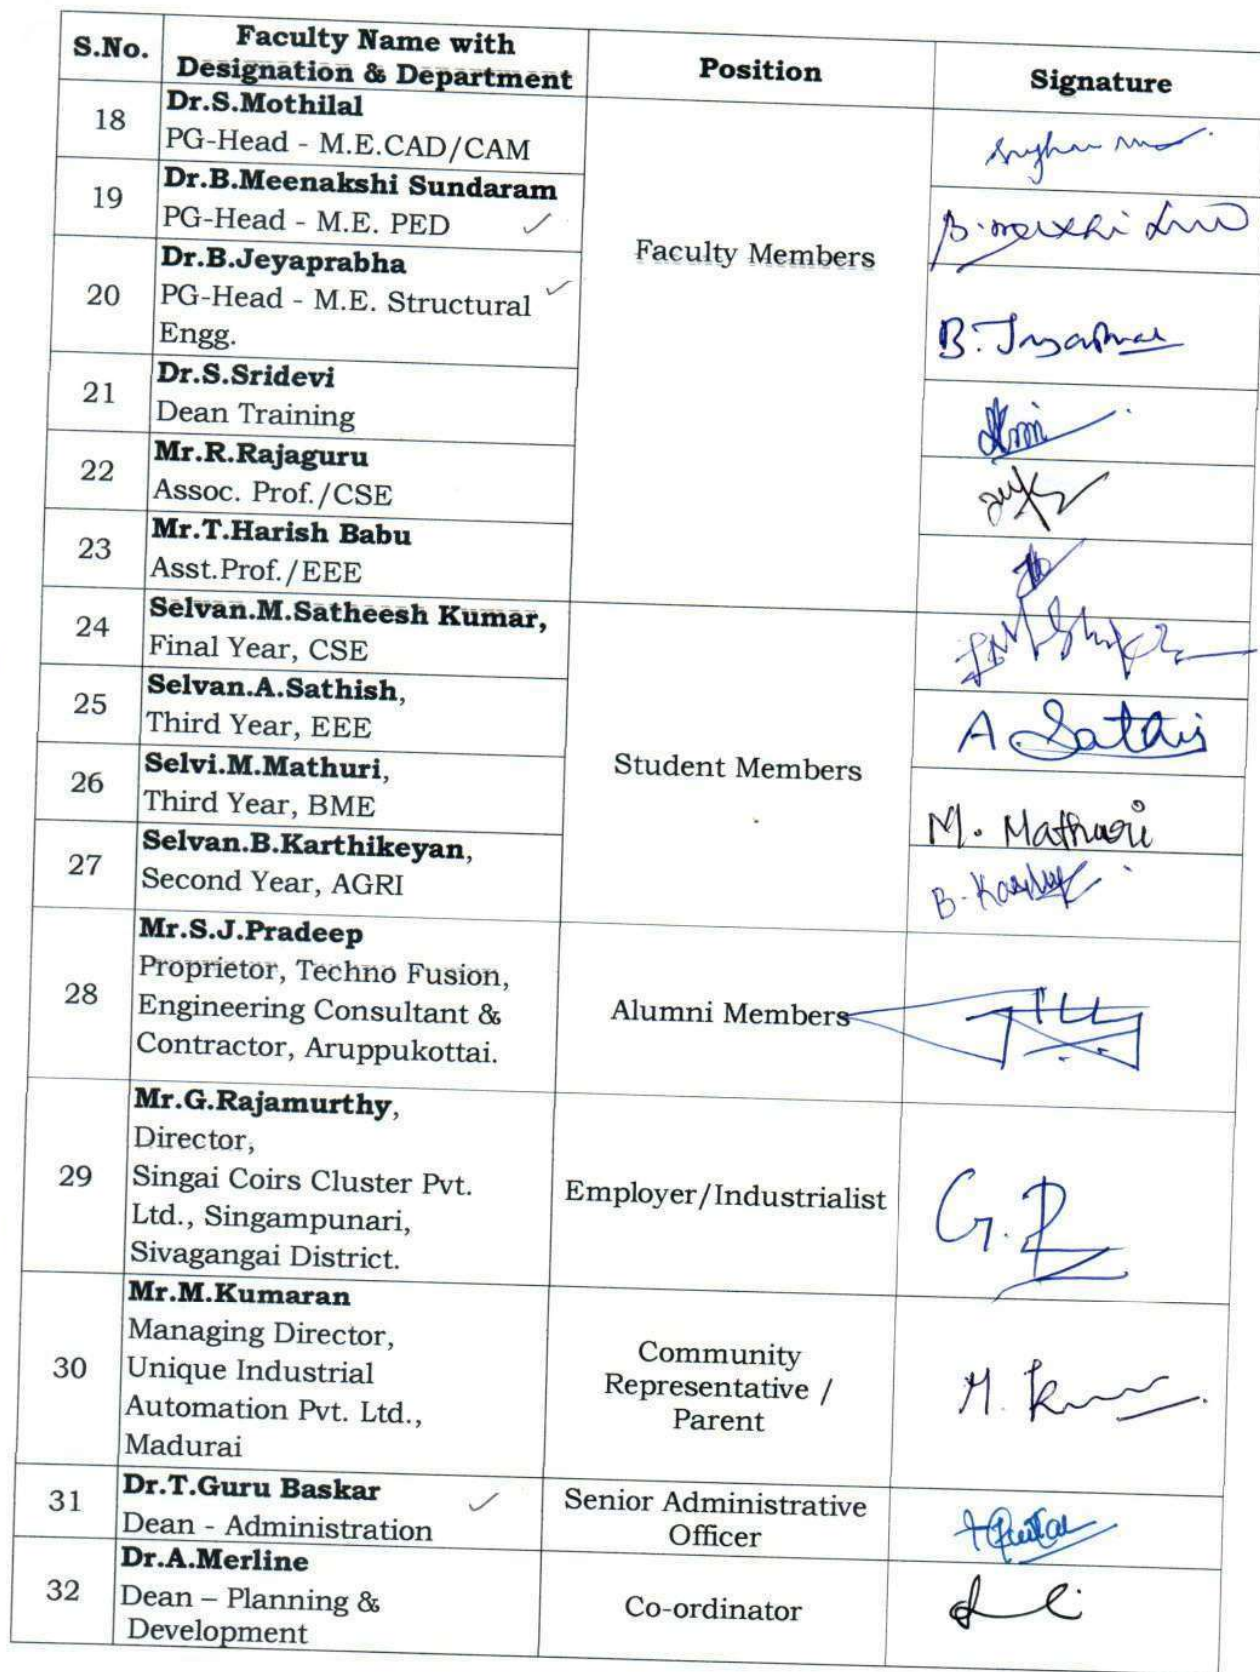 S.No.
Faculty Name with
Designation & Department
Position
Signature
18
Dr.S.Mothilal
PG-Head - M.E.CAD/CAM
19
Dr.B.Meenakshi Sundaram
PG-Head - M.E. PED
Faculty Members
20
Dr.B.Jeyaprabha
PG-Head - M.E. Structural
Engg.
21
Dr.S.Sridevi
Dean Training
22
Mr.R.Rajaguru
Assoc. Prof./CSE
23
Mr.T.Harish Babu
Asst.Prof./EEE
24
Selvan.M.Satheesh Kumar,
Final Year, CSE
25
Selvan.A.Sathish,
Third Year, EEE
Student Members
26
Selvi.M.Mathuri,
Third Year, BME
M. Mathuri
27
Selvan.B.Karthikeyan,
Second Year, AGRI
28
Mr.S.J.Pradeep
Proprietor, Techno Fusion,
Engineering Consultant &
Contractor, Aruppukottai.
Alumni Members
29
Mr.G.Rajamurthy,
Director,
Singai Coirs Cluster Pvt.
Ltd., Singampunari,
Sivagangai District.
Employer/Industrialist
30
Mr.M.Kumaran
Managing Director,
Unique Industrial
Automation Pvt. Ltd.,
Madurai
Community
Representative /
Parent
31
Dr.T.Guru Baskar
Dean - Administration
Senior Administrative
Officer
32
Dr.A.Merline
Dean – Planning &
Development
Co-ordinator